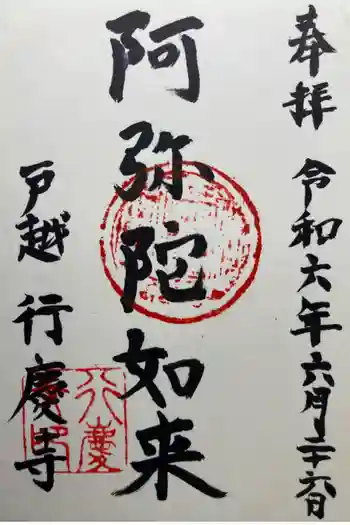 奉拝
令和六年六月二十六日
阿弥陀如来
戸越
行慶寺